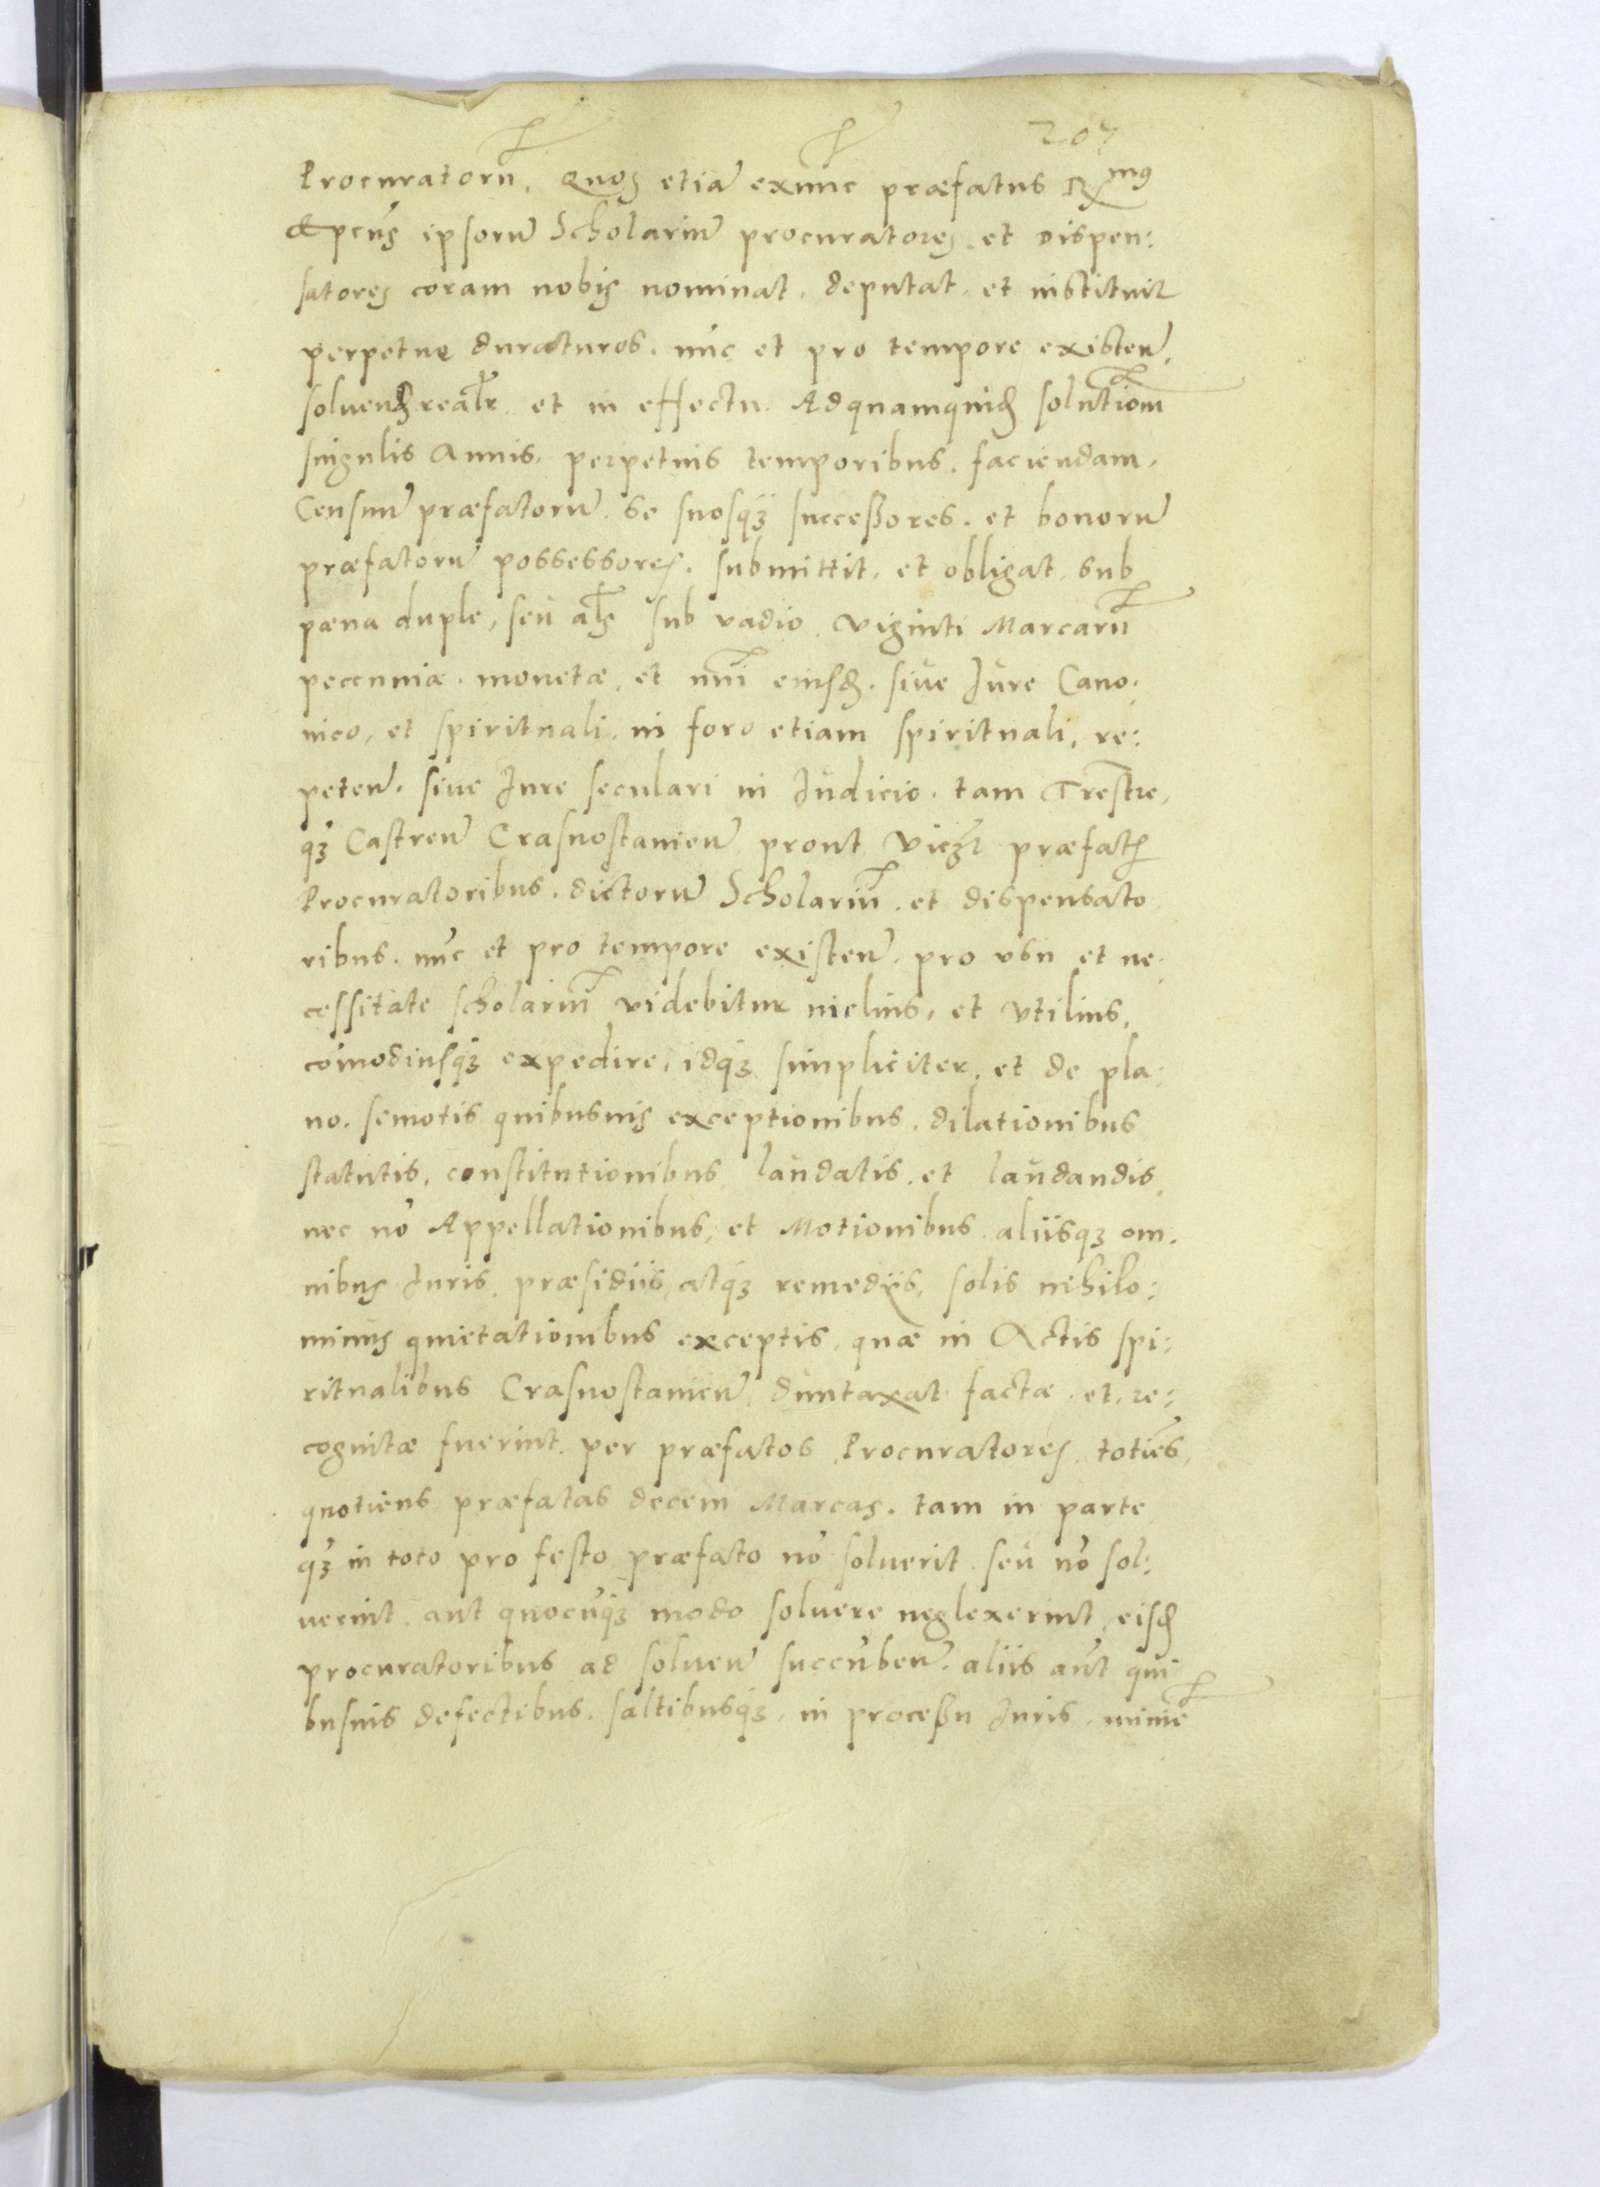 207
Procuratorū, Quos etiā exnunc præfatus Rmus
Epcūs ipsorū Scholariū procuratores et dispen:
satores coram nobis nominat, deputat, et instituit
perpetue duraturos, nūc et pro tempore existeñ,
solvend realr̄ et in effectu. Adquamquid solutionē
singulis Annis, perpetuis temporibus, faciendam,
Censuū præfatorū, se suosq3 succeßores, et bonorū
præfatorū possessores, submittit, et obligat, sub
pæna duple, seu als̄ sub vadio, viginti Marcarū
pecuniæ, monetæ, et nūi eiusd, sive Jure Cano:
nico, et spirituali, in foro etiam spirituali, re:
peteñ, sive Jure seculari in Judicio, tam Trestre,
q3 Castreñ Crasnostavieñ prout præfatis
Procuratoribus, dictorū Scholariū, et dispensato
ribus, nūc et pro tempore existeñ, pro usu et ne:
cessitate scholariū videbitur melius, et utilius,
cōmodiusq3 expedire, idq3 simpliciter, et de pla:
no, semotis quibusuis exceptionibus, dilationibus
statutis, constitutionibus laudatis, et laudandis,
nec nō Appellationibus, et Motionibus aliisq3 om:
nibus Juris præsidiis, atq3 remedijs, solis nihilo:
minus quietationibus exceptis, quæ in Actis spi:
ritualibus Crasnostavieñ duntaxat factæ, et re:
cognitæ fuerint per præfatos Procuratores, totiēs,
quotiens præfatas decem Marcas, tam in parte
q3 in toto pro festo præfato nō solverit, seu nō sol:
verint, aut quocūq3 modo solvere neglexerint, eisd
procuratoribus ad solveñ succūbeñ, aliis aūt qui
busuis defectibus, saltibusq3, in proceßu Juris, minie